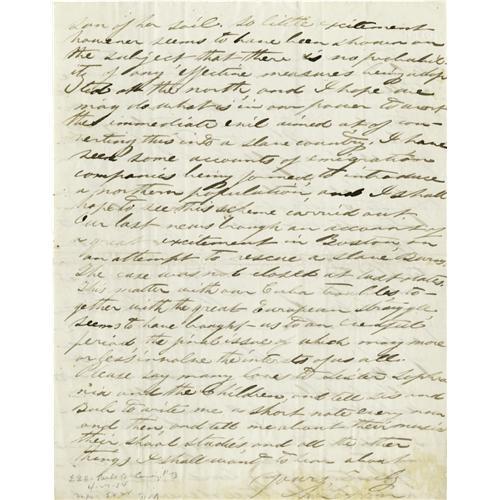 of her soil. So little excitement
however seems to have been shown on
the subject that there is no probabil
ity of any effective measures being adop
ted at the north, and I hope we
may do what is in our power to avert
the immediate evil aimed at of con-
verting this into a slave country. I have
seen some accounts of emigration
companies being formed to introduce
a northern population, and I shall
hope to see this scheme carried out.
Our last news brough an account of
a great excitement in Boston, on
an attempt to rescue a slave Burns.
The case was not closed at last dates.
This matter with our Cuba troubles to-
gether with the great European struggle
seems to have brought us to an eventful
period, the final issue of which may more
or less involve the interests of us all.
Please say many loves to sister Sophro
nia and the Children, and tell Sis and
Bub to write me a short note every now
and then, and tell me about their music
their school studies and all the other
things I shall want to hear about
Yours